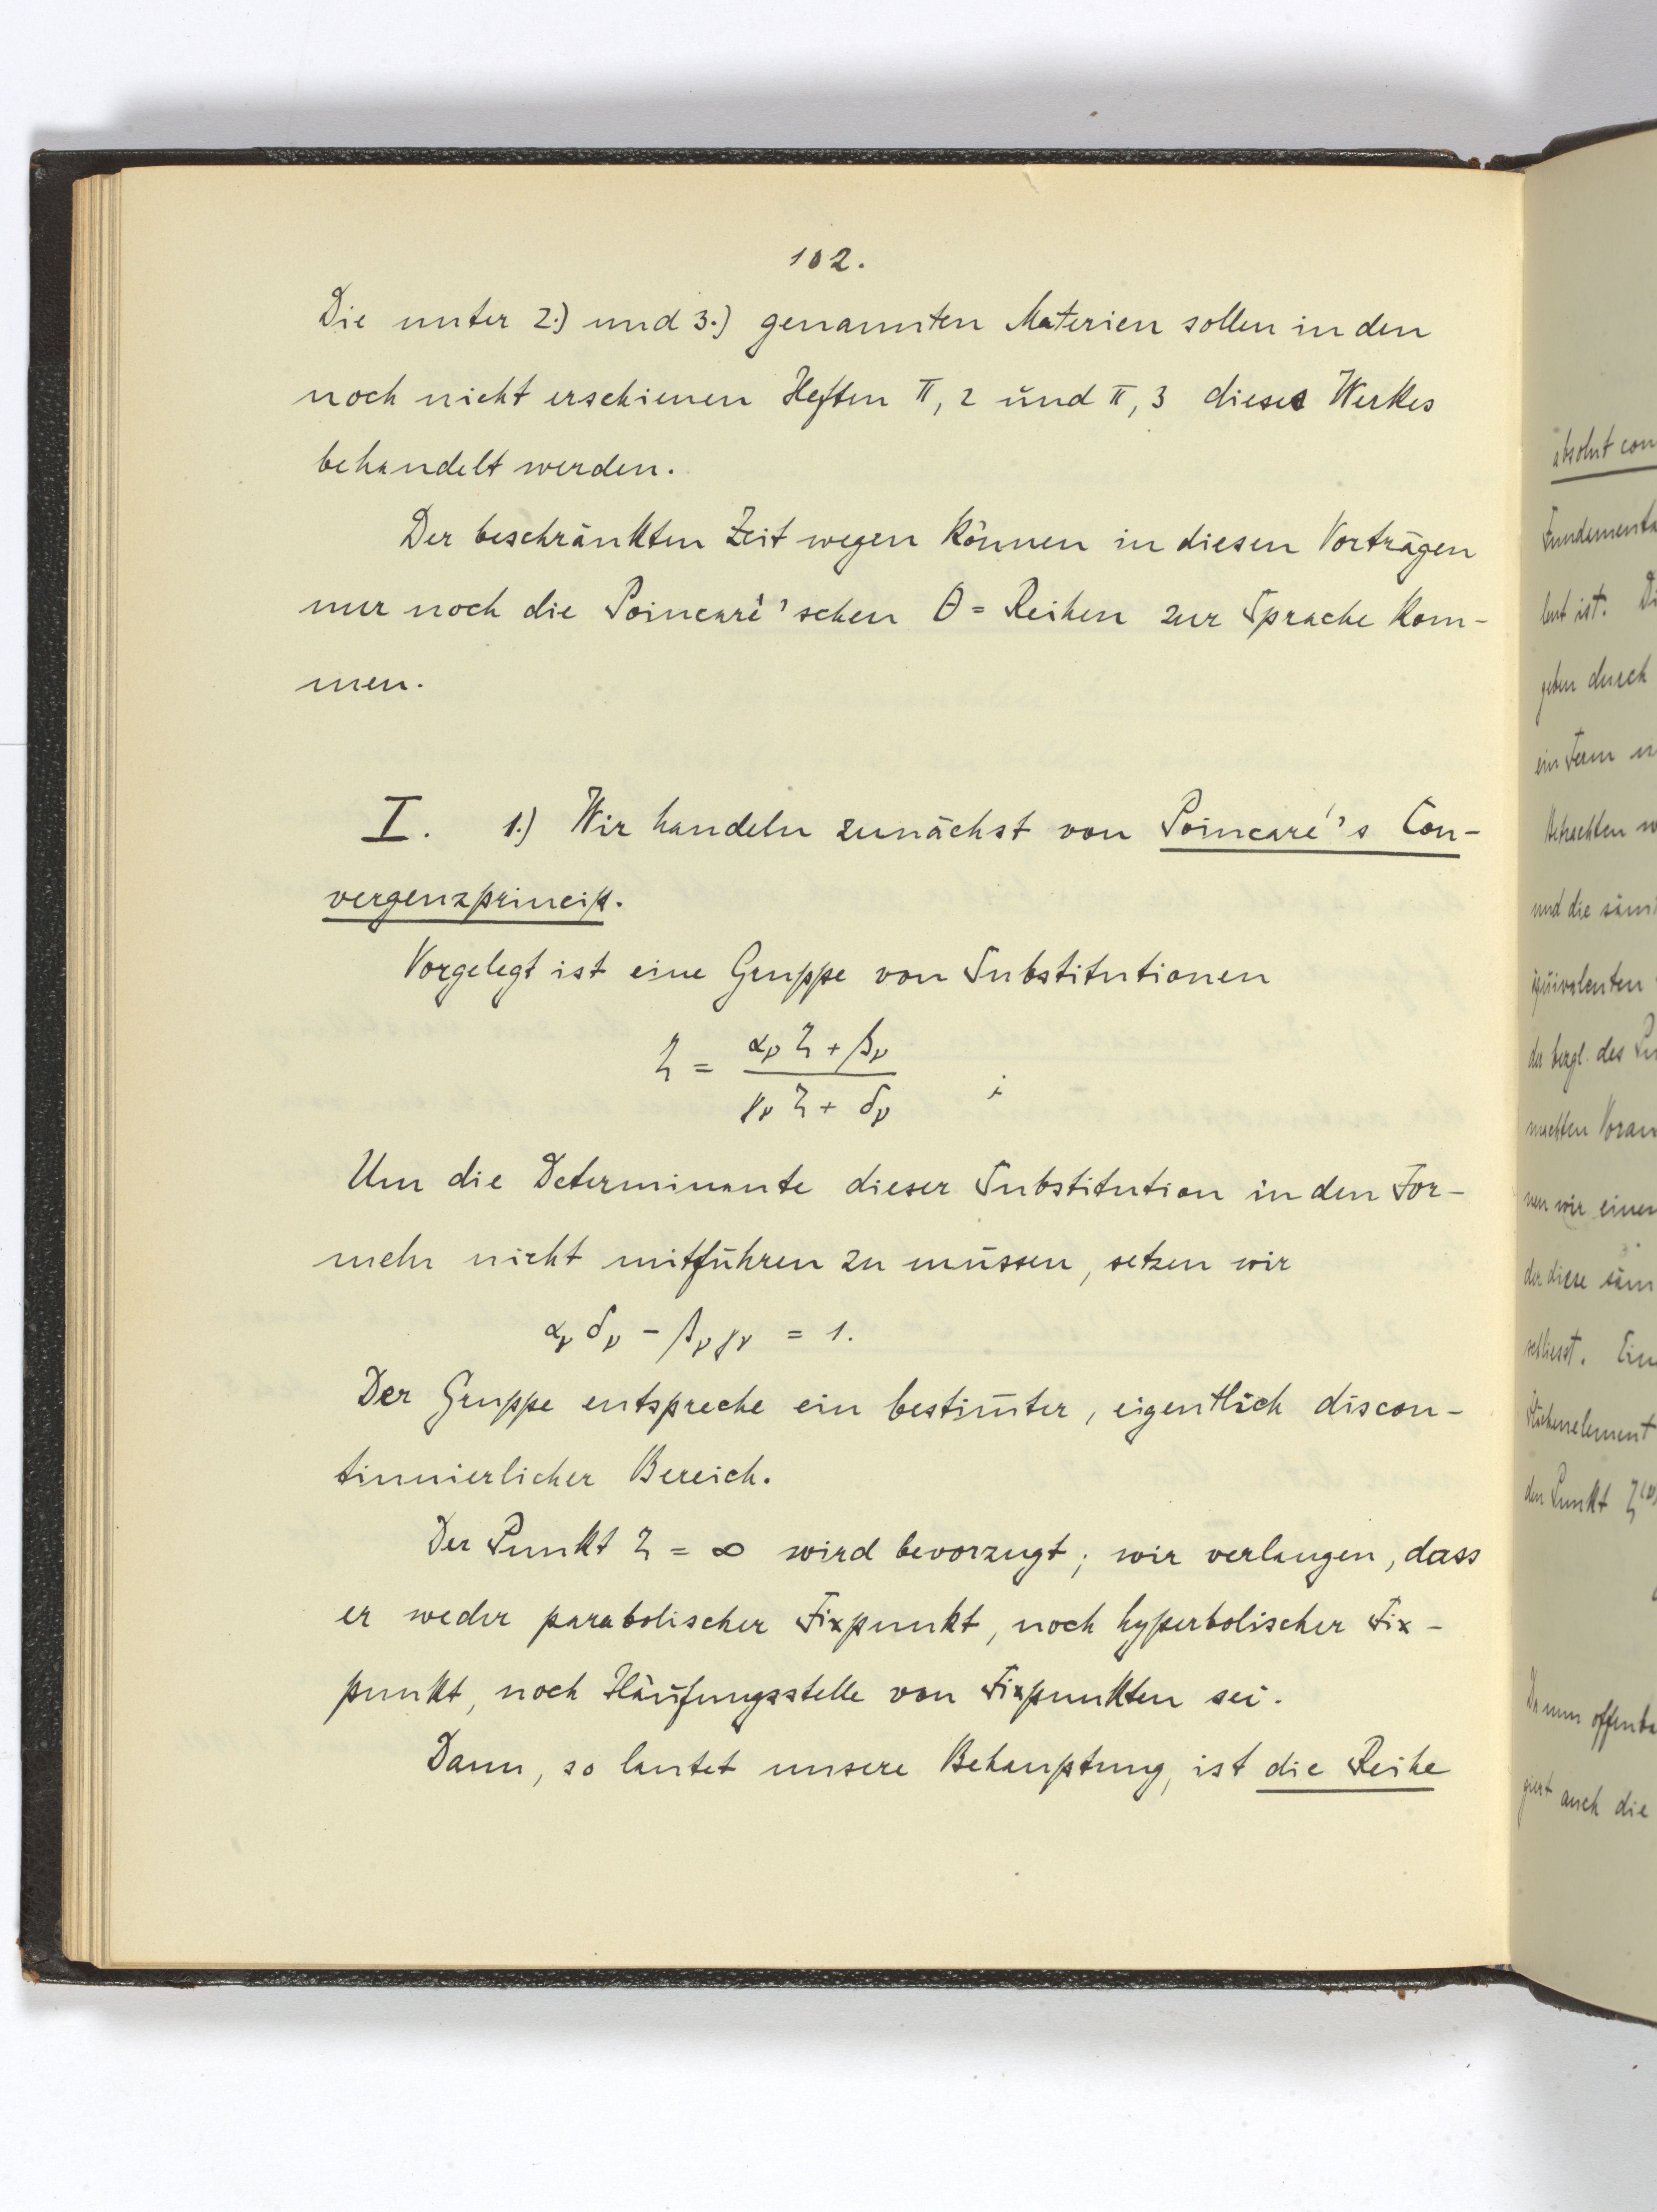 102.
Die unter 2.) und 3.) genannten Materien sollen in den
noch nicht erschienen Heften II, 2 und II, 3 dieses Werkes
behandelt werden.
Der beschränkten Zeit wegen können in diesen Vorträgen
nur noch die Poincaré'schen θ = Reihen zur Sprache kom-
men.
I. 1.) Wir handeln zunächst von Poincaré's Con-
vergenzprincip.
Vorgelegt ist eine Gruppe von Substitutionen
ζ = (α_ν ζ + β_ν) / (γ_ν ζ + δ_ν) ;
Um die Determinante dieser Substitution in den For-
meln nicht mitführen zu müssen, setzen wir
α_ν δ_ν - β_ν γ_ν = 1.
Der Gruppe entspreche ein bestim̅ter, eigentlich discon-
tinuierlicher Bereich.
Der Punkt ζ = ∞ wird bevorzugt; wir verlangen, dass
er weder parabolischer Fixpunkt, noch hyperbolischer Fix-
punkt, noch Häufungsstelle von Fixpunkten sei.
Dann, so lautet unsere Behauptung, ist die Reihe
absolut con
Fundamenta
lent ist. Di
geben durch
ein Term ni
Betrachten w
und die säm
äquivalenten
der bergl. des Pu
machten Voran
nen wir einen
der diese säm
schliesst. Ein
Flächenelement
den Punkt ζ^(ν)
Da nun offenba
giert auch die